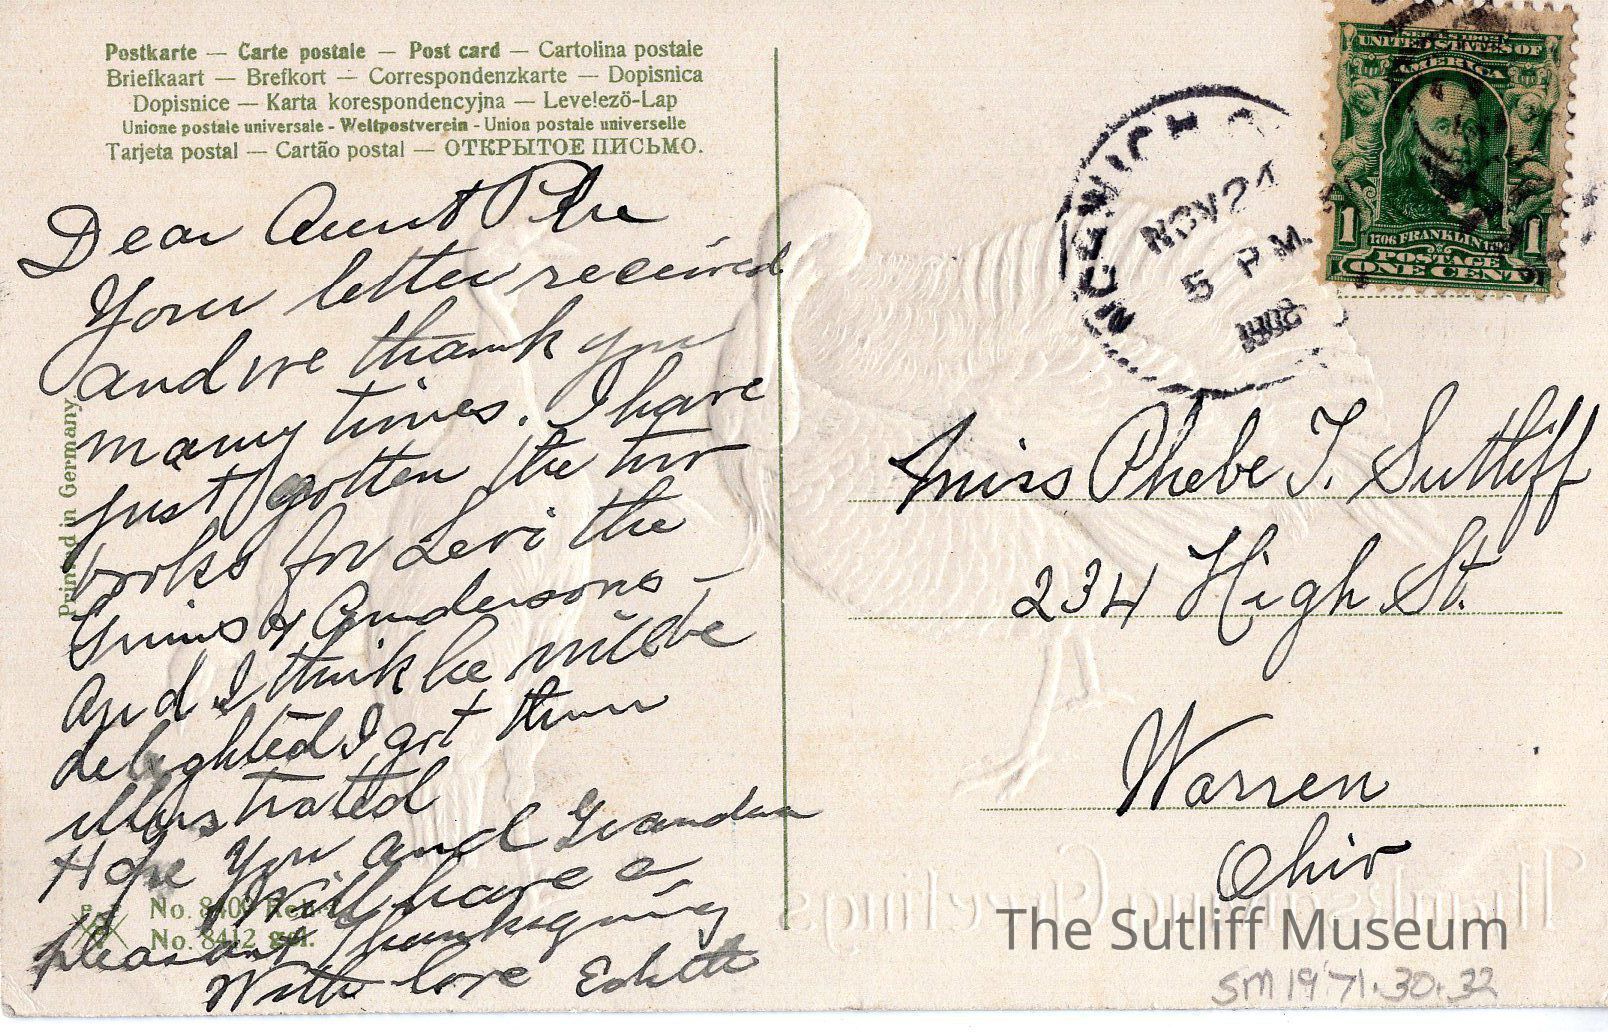 Postkarte — Carte postale — Post card — Cartolina postale
Briefkaart — Brefkort — Correspondenzkarte — Dopisnica
Dopisnice — Karta korespondencyjna — Levelező-Lap
Unione postale universale - Weltpostverein - Union postale universelle
Tarjeta postal — Cartão postal — ОТКРЫТОЕ ПИСЬМО.
Dear Aunt Phe
Your letter received
and we thank you
many times. I have
just gotten the two
books for Levi the
Grims & Andersons –
And I think he will be
delighted I got them
illustrated
Hope you and Grandma
will have a
pleasant Thanksgiving
With love Edith
Printed in Germany
No. 8409
No. 8412 gel.
NOV 24
5 P.M.
UNITED STATES OF
AMERICA
1 1
1706 FRANKLIN 1790
POSTAGE
ONE CENT
Miss Phebe T. Sutliff
234 High St.
Warren
Ohio
Thanksgiving Greetings
The Sutliff Museum
SM 1971.30.32